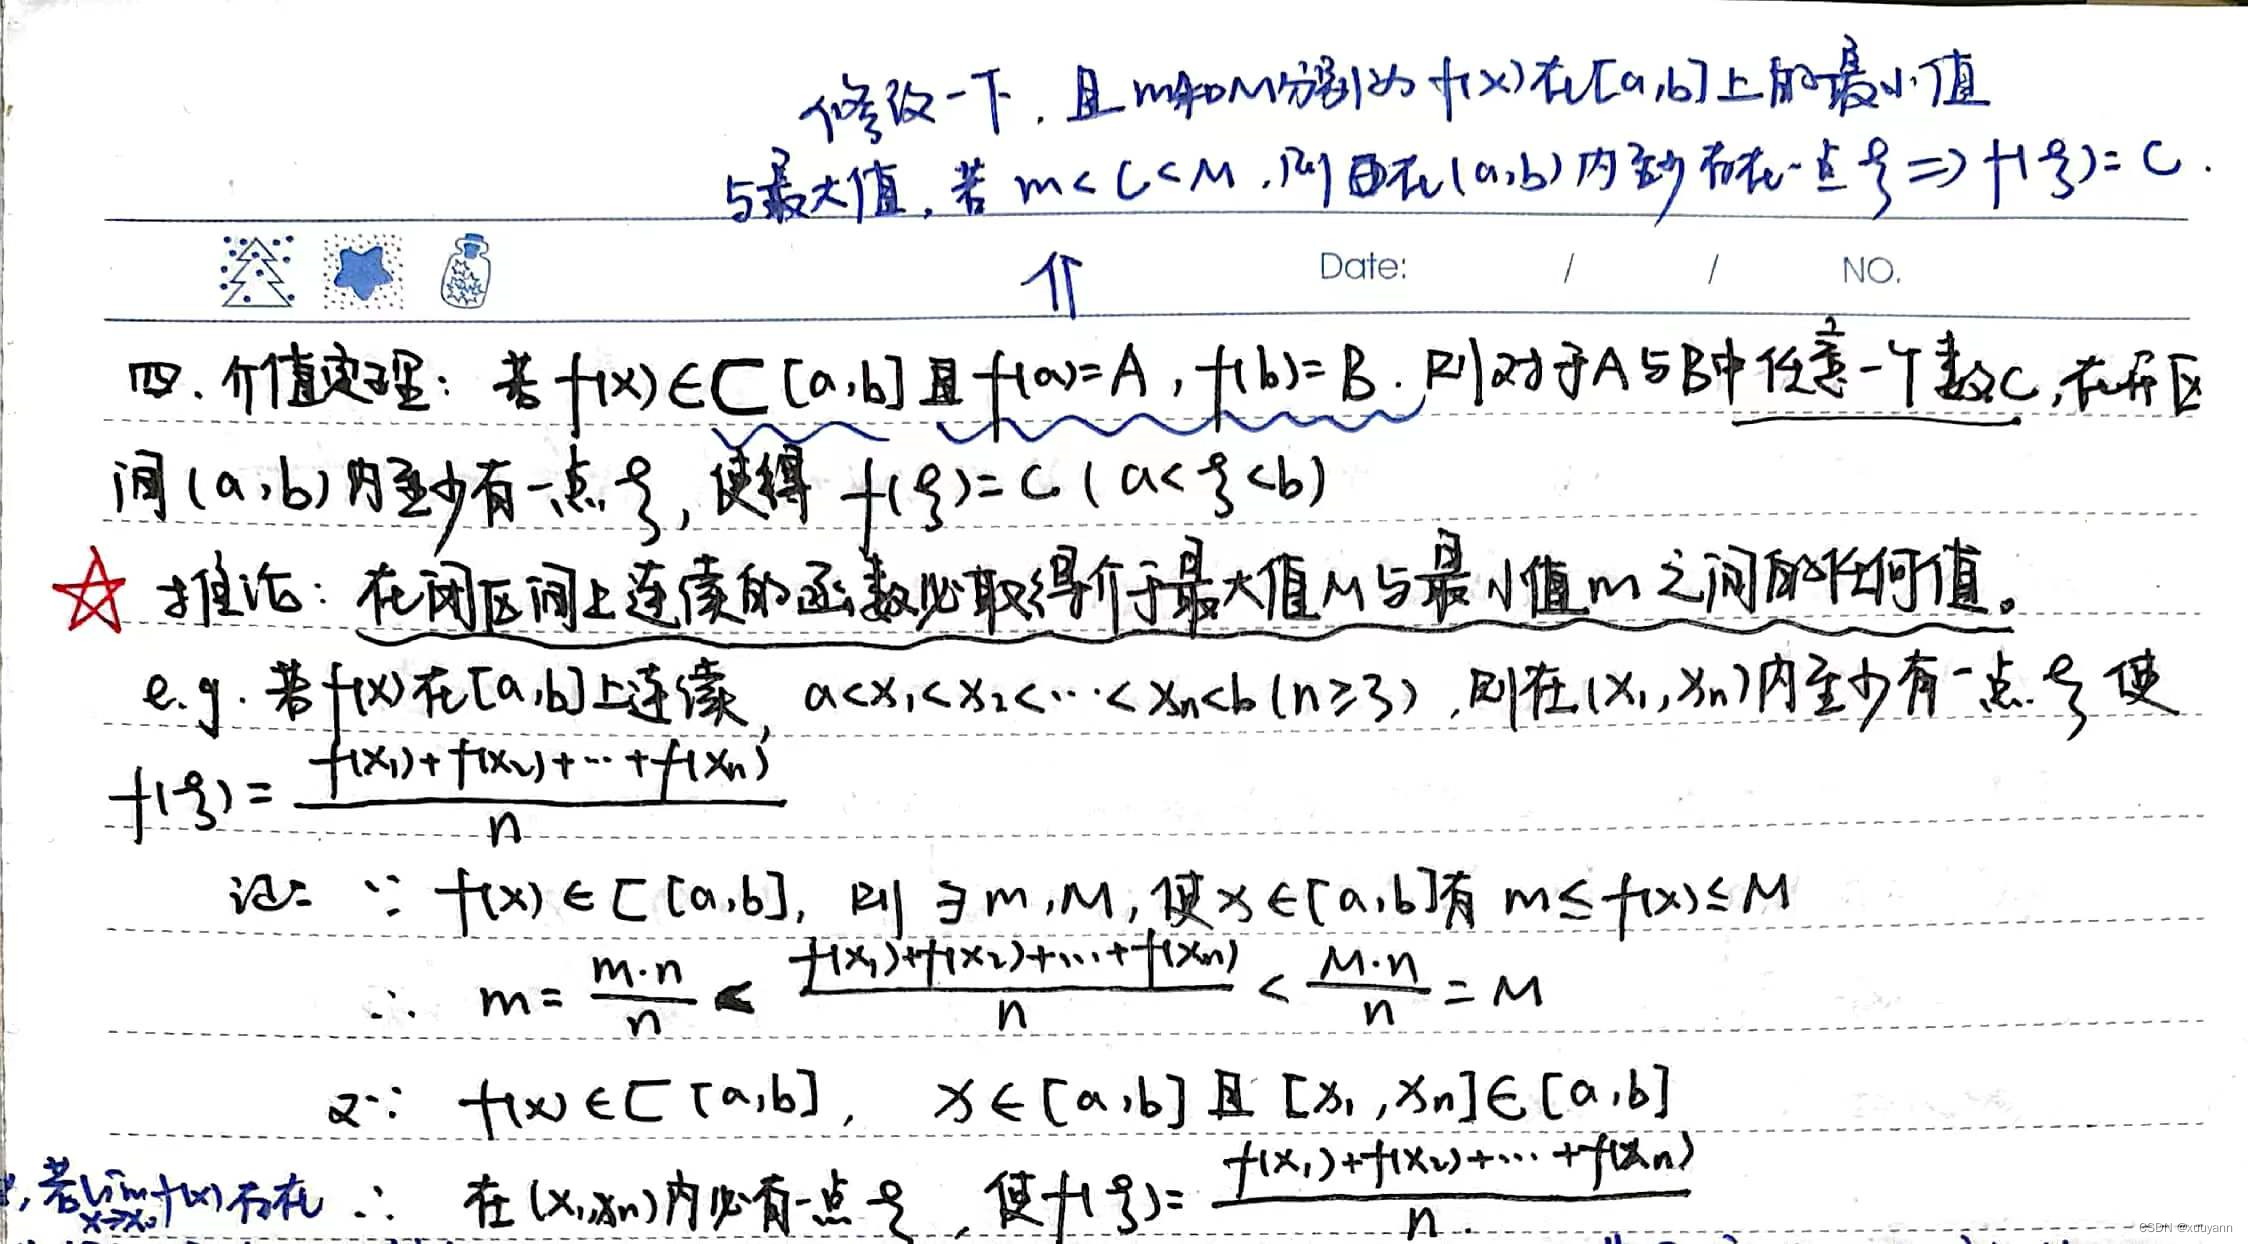 修改一下．且m和M分别为f(x)在[a,b]上的最小值
与最大值，若 m<C<M，则在(a,b)内至少存在一点ξ⇒f(ξ)=C.
⇑ Date: / / NO.
四．介值定理：若f(x)∈C[a,b]且f(a)=A，f(b)=B．则对于A与B中任意一个数C，在开区
间(a,b)内至少有一点ξ，使得 f(ξ)=C (a<ξ<b)
☆ 推论：在闭区间上连续的函数必取得介于最大值M与最小值m之间的任何值。
e.g. 若f(x)在[a,b]上连续，a<x₁<x₂<…<xₙ<b(n≥3)，则在(x₁,xₙ)内至少有一点ξ使
f(ξ)= (f(x₁)+f(x₂)+…+f(xₙ))/n
证: ∵ f(x)∈C[a,b]，则∃m,M，使x∈[a,b]有 m≤f(x)≤M
∴ m= (m·n)/n < (f(x₁)+f(x₂)+…+f(xₙ))/n < (M·n)/n =M
又∵ f(x)∈C[a,b]， x∈[a,b]且[x₁,xₙ]∈[a,b]
，若lim x→x₀ f(x)存在 ∴ 在(x₁,xₙ)内必有一点ξ，使f(ξ)= (f(x₁)+f(x₂)+…+f(xₙ))/n.
CSDN @xduyann